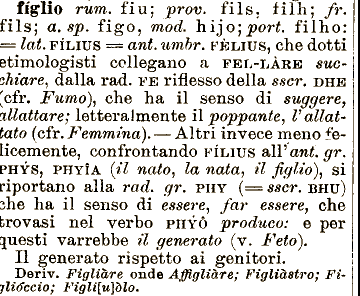 fíglio rum. fiu; prov. fils, filh; fr.
fils; a. sp. figo, mod. hijo; port. filho:
= lat. FÍLIUS = ant. umbr. FÈLIUS, che dotti
etimologisti collegano a FEL-LÀRE suc-
chiare, dalla rad. FE riflesso della sscr. DHE
(cfr. Fumo), che ha il senso di suggere,
allattare; letteralmente il poppante, l'allat-
tato (cfr. Femmina). — Altri invece meno fe-
licemente, confrontando FÍLIUS all'ant. gr.
PHŶS, PHYÍA (il nato, la nata, il figlio), si
riportano alla rad. gr. PHY (= sscr. BHU)
che ha il senso di essere, far essere, che
trovasi nel verbo PHÝÔ produco: e per
questi varrebbe il generato (v. Feto).
Il generato rispetto ai genitori.
Deriv. Figliàre onde Affigliàre; Figliàstro; Fi-
glióccio; Figli[u]òlo.